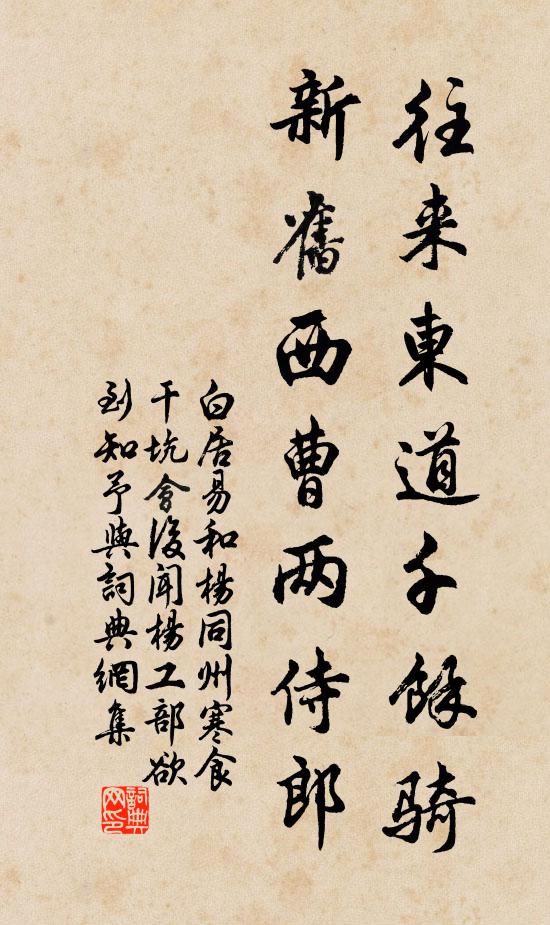 往来東道千餘騎
新舊西曹两侍郎
白居易和楊同州寒食
干坑會後聞楊工部欲
到知予與詞典網集
詞典网印